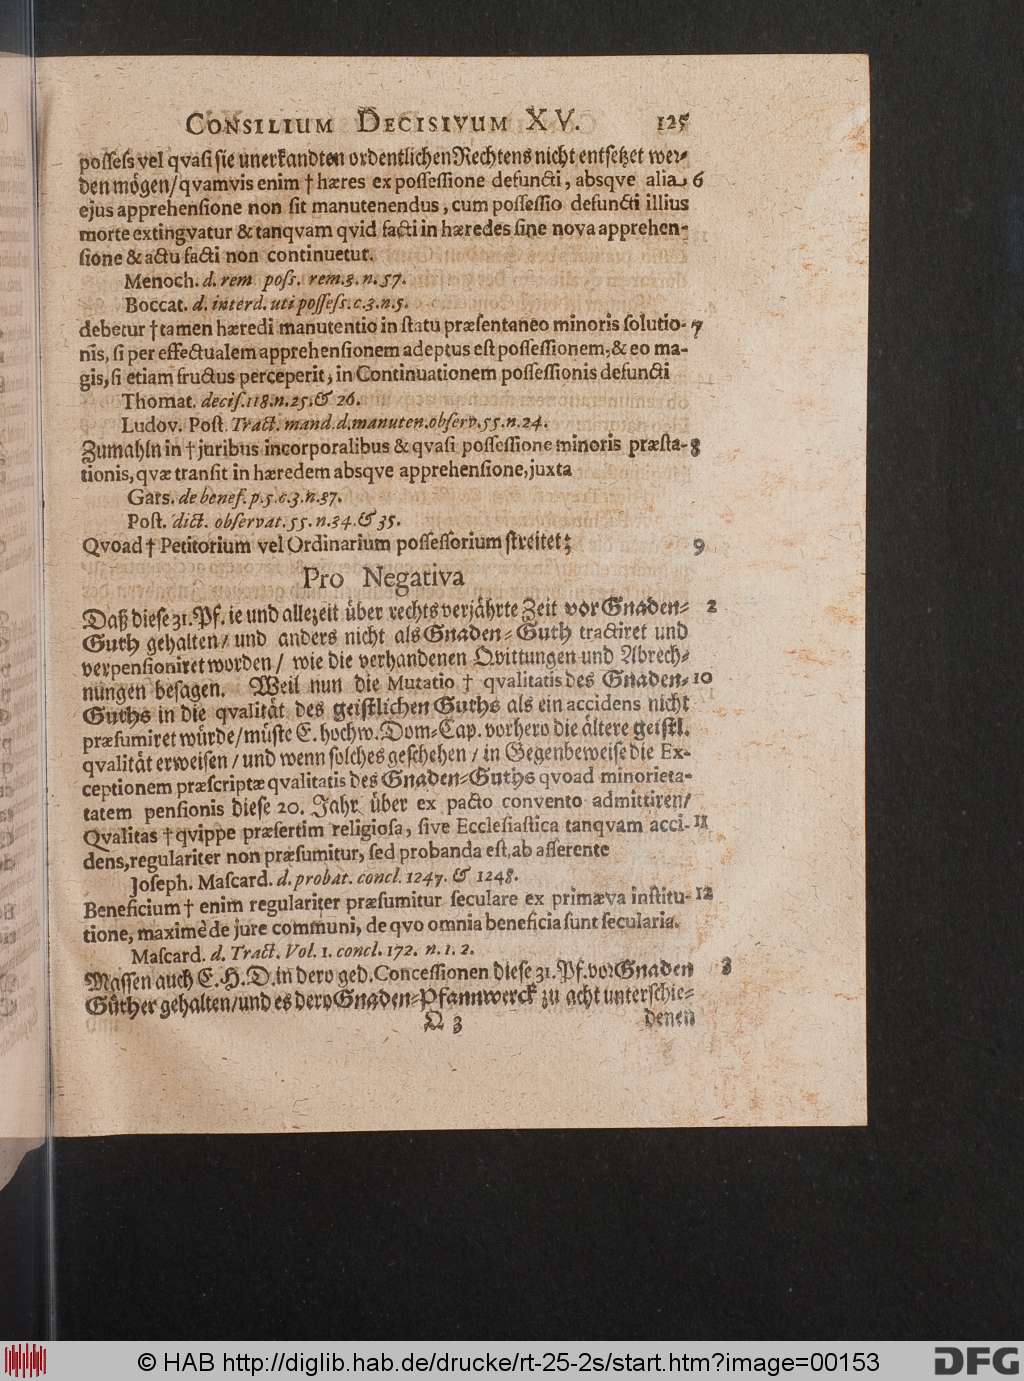 CONSILIUM DECISIVUM XV. 125
possess vel qvasi sie unerkandten ordentlichen Rechtens nicht entsetzet wer-
den mögen/ qvamvis enim † hæres ex possessione defuncti, absqve alia 6
ejus apprehensione non sit manutenendus, cum possessio defuncti illius
morte extingvatur & tanqvam qvid facti in hæredes sine nova apprehen-
sione & actu facti non continuetut.
Menoch. d. rem poss. rem. 3. n. 57.
Boccat. d. interd. uti possess. c. 3. n. 5.
debetur † tamen hæredi manutentio in statu præsentaneo minoris solutio- 7
nis, si per effectualem apprehensionem adeptus est possessionem, & eo ma-
gis, si etiam fructus perceperit, in Continuationem possessionis defuncti
Thomat. decis. 118. n. 25. & 26.
Ludov. Post. Tract. mand. d. manuten. observ. 55. n. 24.
Zumahln in † juribus incorporalibus & qvasi possessione minoris præsta- 8
tionis, qvæ transit in hæredem absqve apprehensione, juxta
Gars. de benef. p. 5. c. 3. n. 37.
Post. dict. observat. 55. n. 34. & 35.
Qvoad † Petitorium vel Ordinarium possessorium streitet; 9
Pro Negativa
Daß diese 31. Pf. ie und allezeit über rechts verjährte Zeit vor Gnaden- 2
Guth gehalten/ und anders nicht als Gnaden-Guth tractiret und
verpensioniret worden/ wie die verhandenen Qvittungen und Abrech-
nungen besagen. Weil nun die Mutatio † qvalitatis des Gnaden- 10
Guths in die qvalität des geistlichen Guths als ein accidens nicht
præsumiret würde/ müste E. hochw. Dom-Cap. vorhero die ältere geistl.
qvalität erweisen/ und wenn solches geschehen/ in Gegenbeweise die Ex-
ceptionem præscriptæ qvalitatis des Gnaden-Guths qvoad minorieta-
tatem pensionis diese 20. Jahr über ex pacto convento admittiren/
Qvalitas † qvippe præsertim religiosa, sive Ecclesiastica tanqvam acci- 11
dens, regulariter non præsumitur, sed probanda est, ab asserente
Joseph. Mascard. d. probat. concl. 1247. & 1248.
Beneficium † enim regulariter præsumitur seculare ex primæva institu- 12
tione, maximè de jure communi, de qvo omnia beneficia sunt secularia.
Mascard. d. Tract. Vol. 1. concl. 172. n. 1. 2.
Massen auch E. H. D. in dero ged. Concessionen diese 31. Pf. vor Gnaden 3
Güther gehalten/ und es dero Gnaden-Pfannwerck zu acht unterschie-
Q 3 denen
© HAB http://diglib.hab.de/drucke/rt-25-2s/start.htm?image=00153 DFG